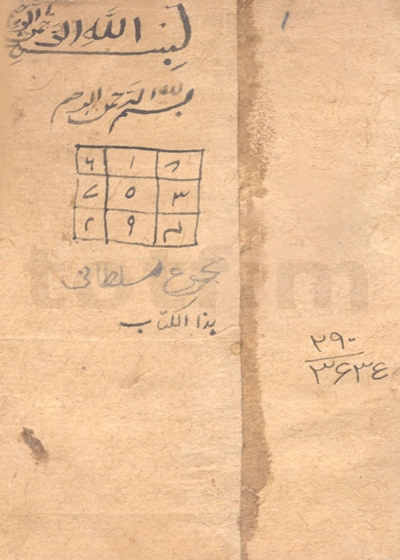 بسم الله الرحمن الرحيم
١
بسم الله الرحمن الرحيم
٦ ١ ٨
٧ ٥ ٣
٢ ٩ ٤
مجموع سلطانی
هذا الکتاب
۲۹۰
۳۶۳٤